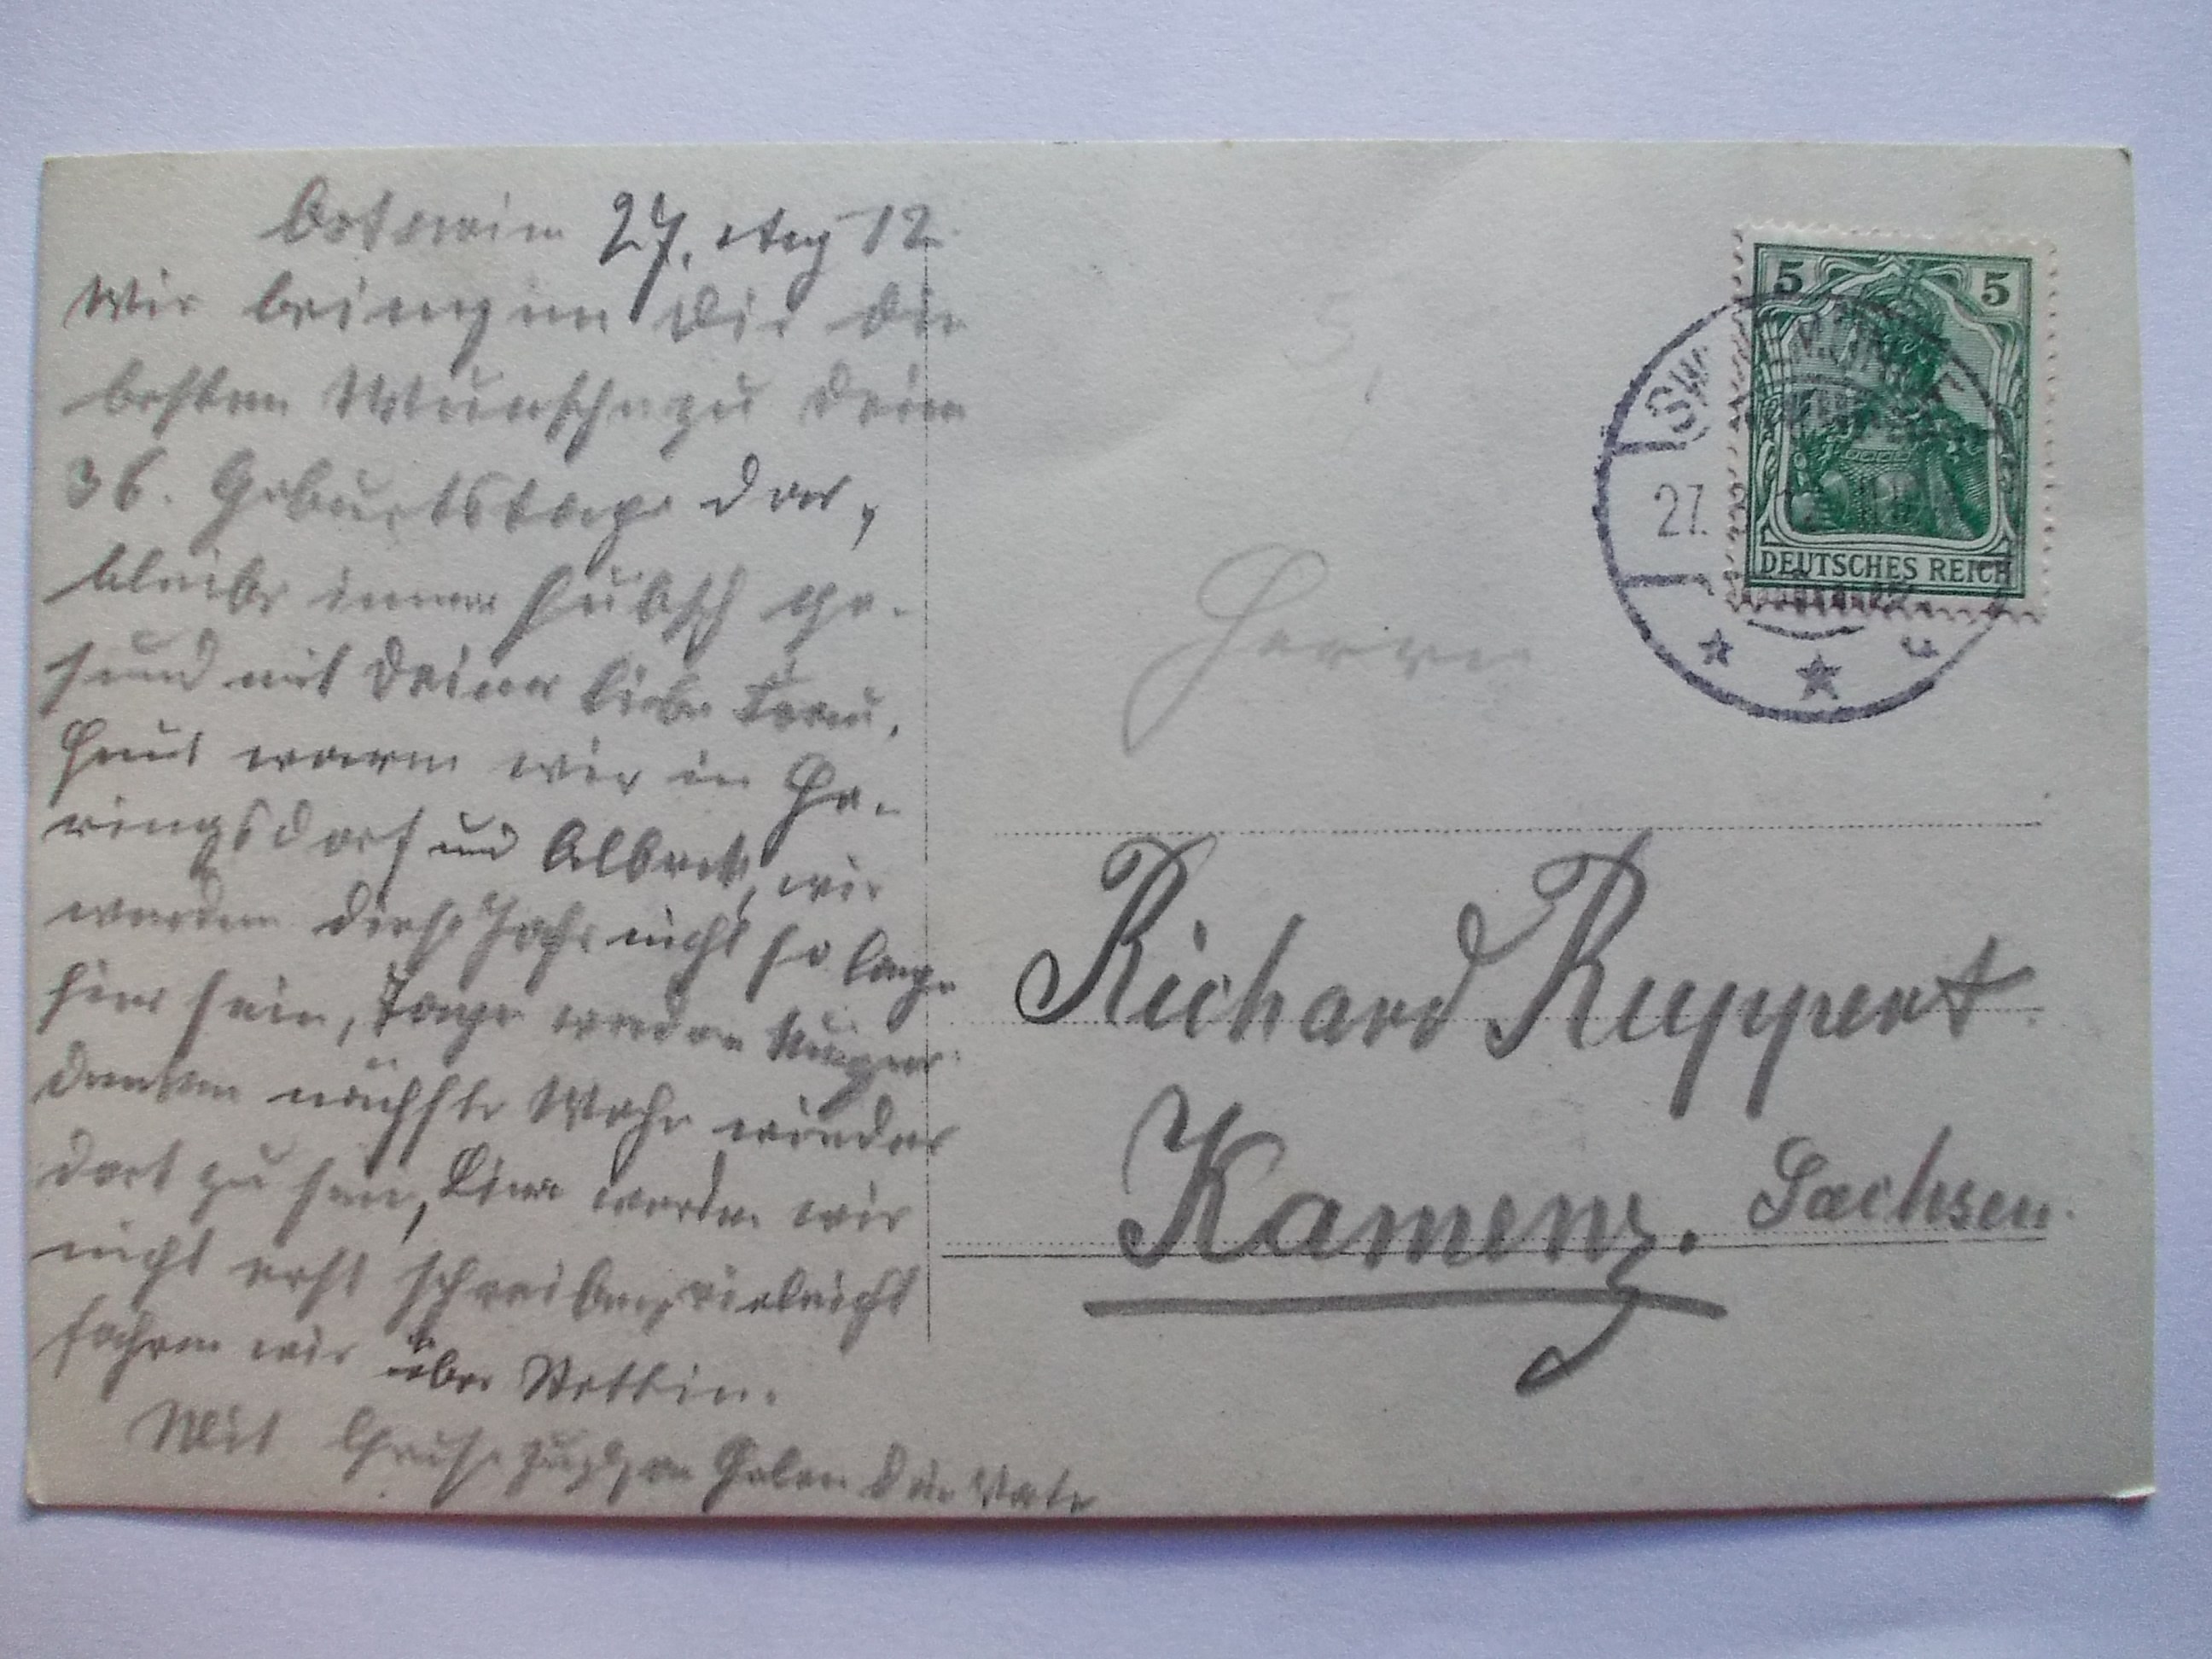 27. Aug 12.
Wir bringen Dir die
besten Wunsche zu Dein
36. Geburtstage dar,
bleibe immer hübsch ge-
sund mit Deiner liebe Frau.
Heut warn wir in He-
ringsdorf und Albeck, wir
werden diese Jahr nicht so lange
hier sein,
denken nächste Woche wieder
dort zu sein, werden wir
nicht erst schreiben, vieleicht
fahren wir über Stettin.
Mit Gruß Dein Vater
5 5
DEUTSCHES REICH
SWINEMÜNDE
27.
Herrn
Richard Ruppert
Kamenz. Sachsen.